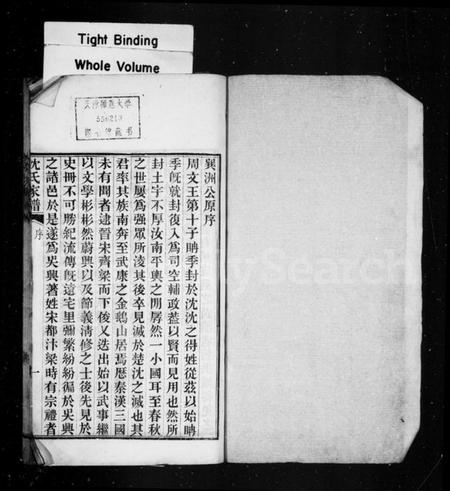 Tight Binding
Whole Volume
天津師范大學
556213
圖書館藏書
巽洲公原序
周文王第十子聃季封於沈沈之得姓從茲以始聃
季旣就封復入爲司空輔政蓋以賢而見用也然所
封土字不厚汝南平輿之間孱然一小國耳至春秋
之世屢爲强眾所淩其後卒見滅於楚沈之滅也其
君率其族南奔至武康之金鵝山居焉歷秦漢三國
未有聞者逮晉宋齊梁而下俊又迭出始以武事繼
以文學彬彬然蔚興以及節義清修之士後先見於
史冊不可勝紀流傳旣遠宅里彌繁紛紛徧於吳興
之諸邑於是遂爲吳興著姓宋都汴梁時有宗禮者
沈氏家譜
序
一